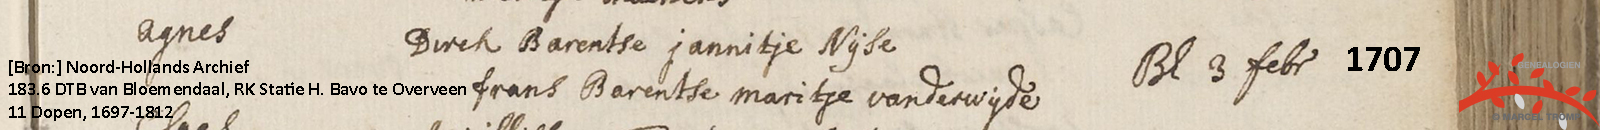 agnes
Dirck Barentse jannitje Nijse
frans Barentse maritje vanderwijde
Bl 3 febr 1707
[Bron:] Noord-Hollands Archief
183.6 DTB van Bloemendaal, RK Statie H. Bavo te Overveen
11 Dopen, 1697-1812
GENEALOGIEN
© MARCEL TROMP